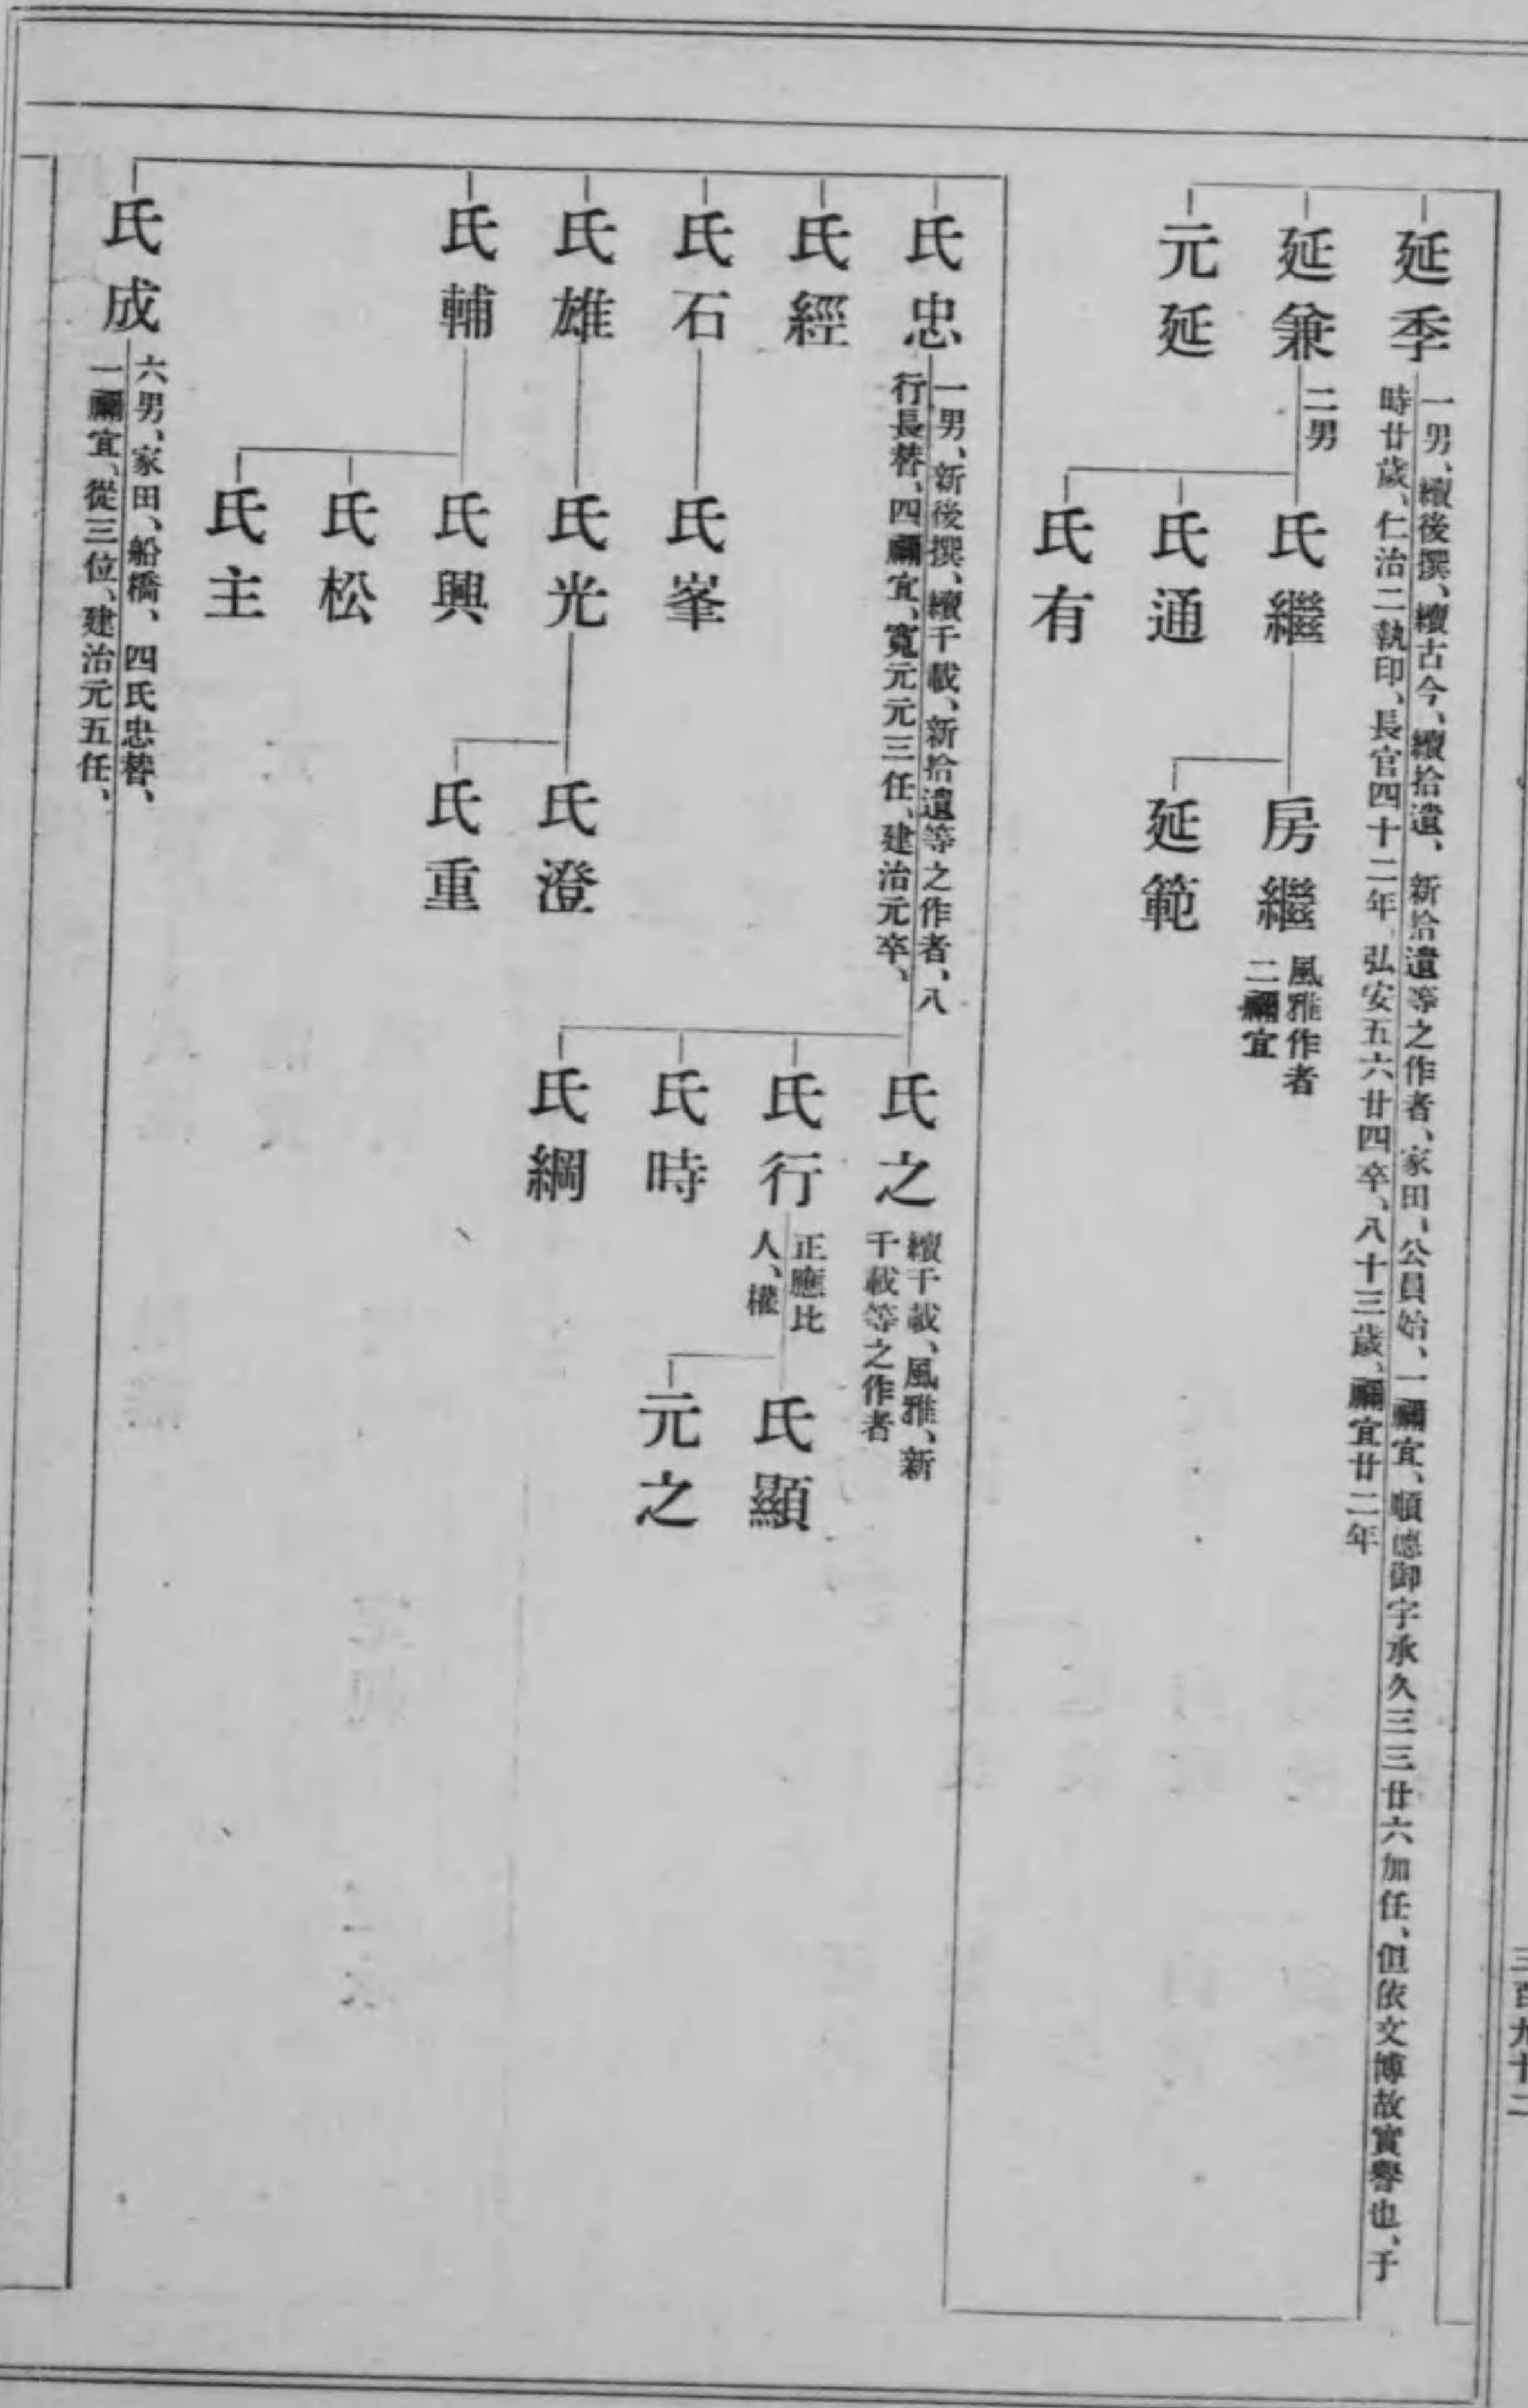 延季
一男、續後撰、續古今、續拾遺、新拾遺等之作者、家田、公員始、一禰宜、順德御宇承久三三廿六加任、但依文博故實譽也、于
時廿歲、仁治二執印、長官四十二年、弘安五六廿四卒、八十三歲、禰宜廿二年
延兼
二男
氏繼
房繼
風雅作者
二禰宜
延範
氏通
氏有
元延
氏忠
一男、新後撰、續千載、新拾遺等之作者、八
行長替、四禰宜、寬元元三任、建治元卒、
氏之
續千載、風雅、新
千載等之作者
氏行
正應比
人、權
氏顯
元之
氏時
氏綱
氏經
氏石
氏峯
氏雄
氏光
氏澄
氏重
氏輔
氏興
氏松
氏主
氏成
六男、家田、船橋、四氏忠替、
一禰宜、從三位、建治元五任、
三百九十二